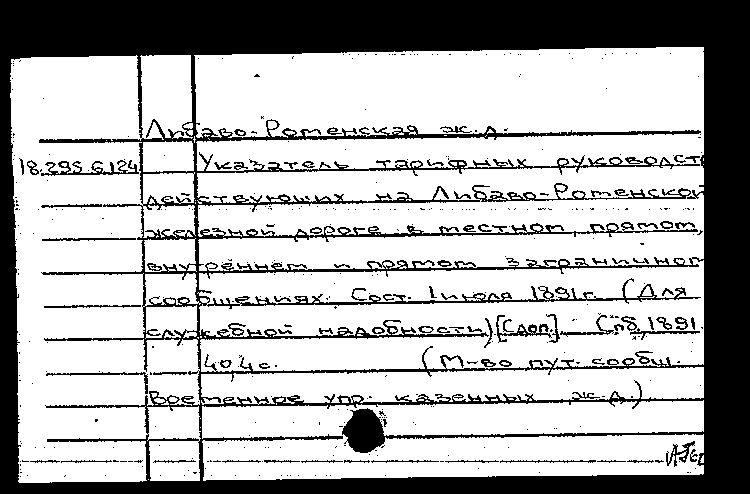 Либаво-Роменская ж.д.
18.295.6.124 Указатель тарифных руководств
действующих на Либаво-Роменской
железной дороге в местном, прямом,
внутреннем и прямом заграничном
сообщениях. Сост. 1 июля 1891 г. (Для
служебной надобности) [С доп.]. Спб, 1891.
40,4 с. (М-во пут. сообщ.
Временное упр. казенных ж.д.)